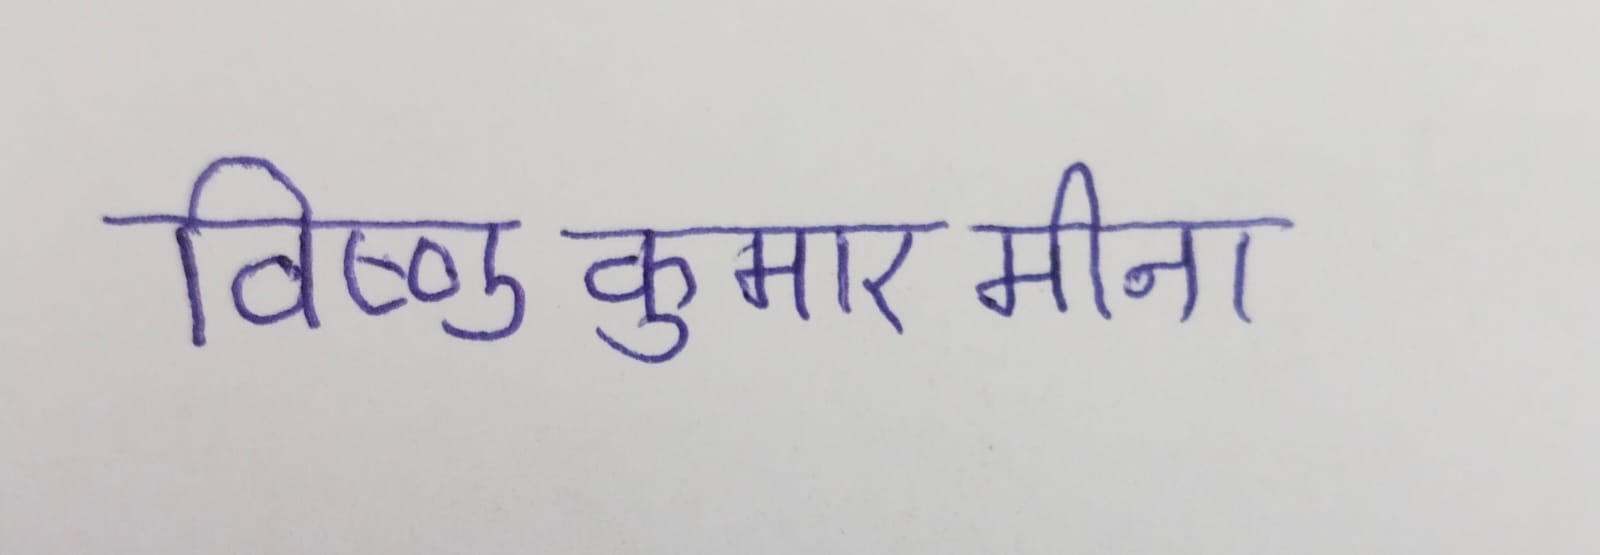 विष्णु कुमार मीना